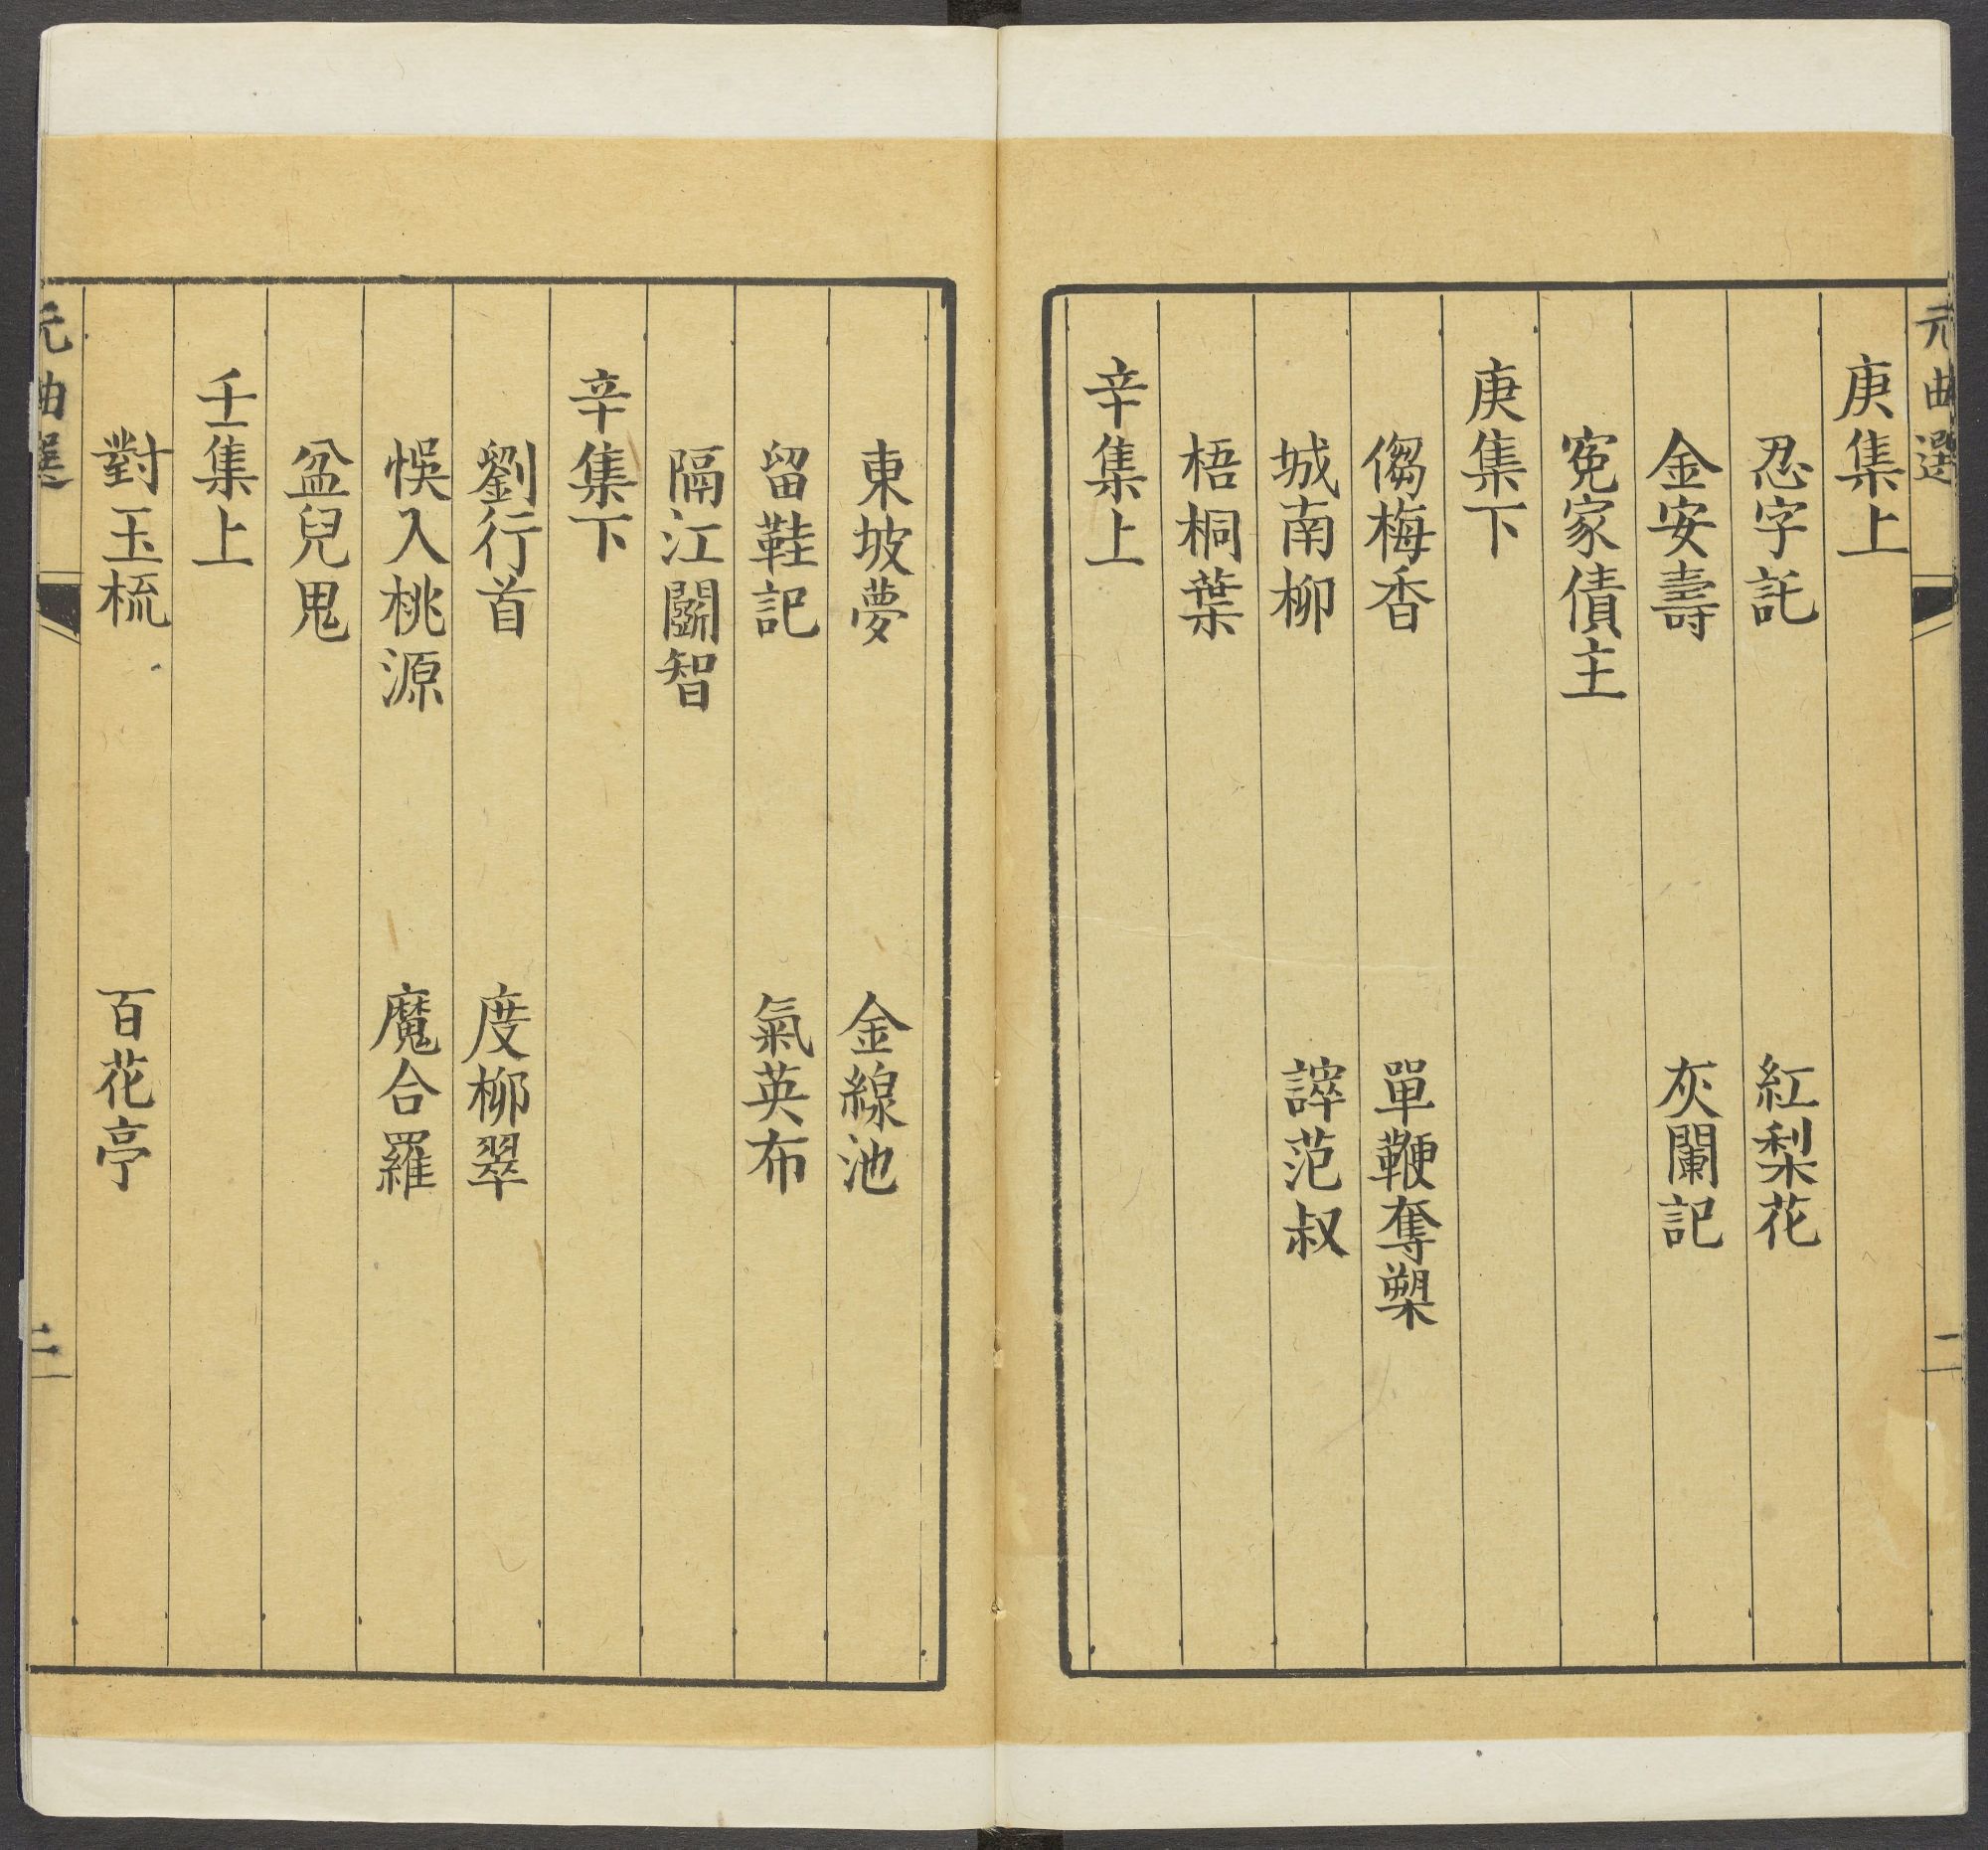 元曲選
二
庚集上
忍字記 紅梨花
金安壽 灰闌記
寃家債主
庚集下
㑳梅香 單鞭奪槊
城南柳 誶范叔
梧桐葉
辛集上
東坡夢 金線池
留鞋記 氣英布
隔江鬭智
辛集下
劉行首 度柳翠
悞入桃源 魔合羅
盆兒鬼
壬集上
對玉梳 百花亭
元曲選
二